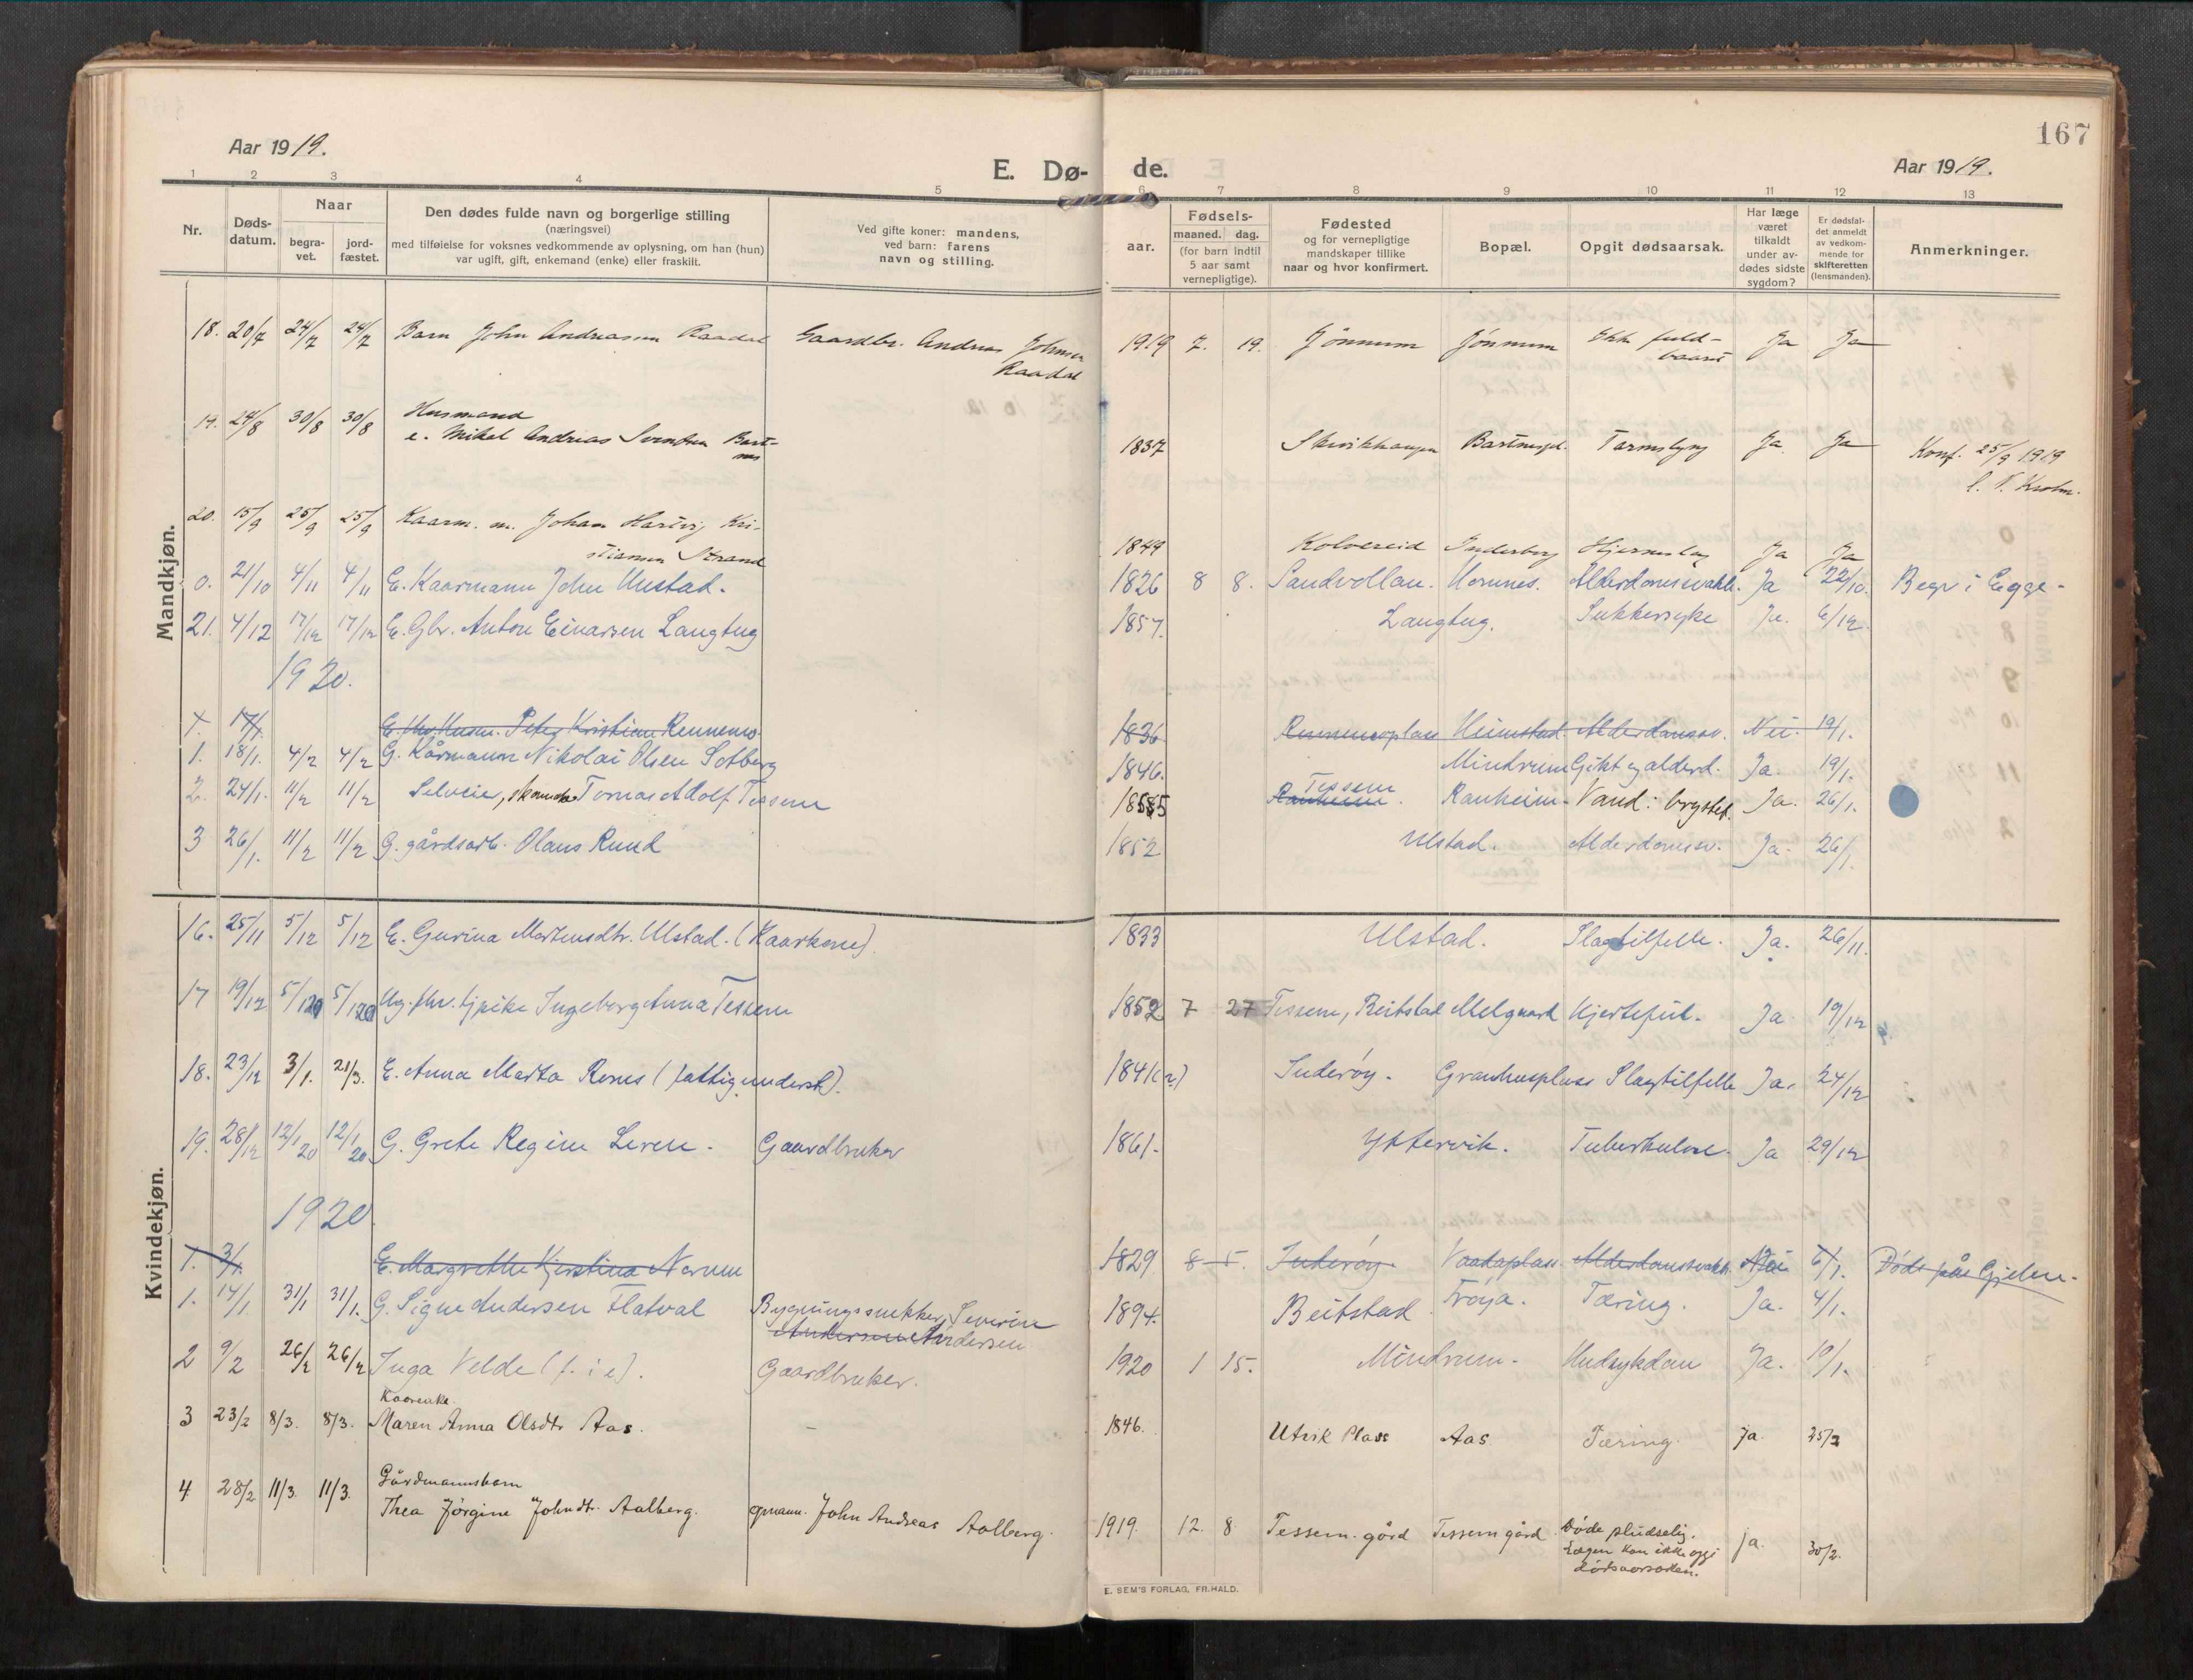 Aar 1919.
E. Dø- de.
Aar 1919.
167
1 2 3 4 5 6 7 8 9 10 11 12 13
Nr.
Døds-
datum.
Naar
begra-
vet.
jord-
fæstet.
Den dødes fulde navn og borgerlige stilling
(næringsvei)
med tilføielse for voksnes vedkommende av oplysning, om han (hun)
var ugift, gift, enkemand (enke) eller fraskilt.
Ved gifte koner: mandens,
ved barn: farens
navn og stilling.
aar.
Fødsels-
maaned. dag.
(for barn indtil
5 aar samt
vernepligtige).
Fødested
og for vernepligtige
mandskaper tillike
naar og hvor konfirmert.
Bopæl.
Opgit dødsaarsak.
Har læge
været
tilkaldt
under av-
dødes sidste
sygdom?
Er dødsfal-
det anmeldt
av vedkom-
mende for
skifteretten
(lensmanden).
Anmerkninger.
Mandkjøn.
18. 20/7 24/7 24/7 Barn John Andreassen Raadal Gaardbr. Andreas Johnsen 1919 7. 19. Jönnum Jönnum Ikke fuld- Ja Ja
Raadal baaret
19. 24/8 30/8 30/8 Husmand
e. Mikal Andreas Svendsen Bart- 1837 Bartnespl. Tarmslyng Ja. Ja Konf. 25/9 1919
nes
20. 15/9 25/9 25/9 Kaarm. m. Johan Hartvig Kri-
stiansen Strand 1849 Kolvereid Inderberg Hjerneslag Ja Ja
0. 21/10 4/11 4/11 E. Kaarmann John Unstad. 1826 8 8. Sandvollan. Hornnes. Alderdomssvakh. Ja 22/10. Begr i Egge-
21. 4/12 17/12 17/12 E. Gbr. Anton Einarsen Langtug 1857. Langtug. Sukkersyke Ja. 6/12.
1920.
1. 17/1. E. fhv. Husm. Peter Kristian Rennemo 1836 Rennemoplass Heimstad. Alderdomssv. Nei. 19/1.
1. 18/1. 4/2 4/2 G. Kårmann Nikolai Olsen Solberg 1846. Mindrum Gikt og alderd. Ja. 19/1.
2. 24/1. 11/2 11/2 Selveier, skomaker Tomas Adolf Tessem 1855 Ranheim Tessem. Ranheim. Vand i brystet. Ja. 26/1.
3 26/1. 11/2 11/2 G. gårdsarb. Olaus Rund 1852 Ulstad. Alderdomssv. Ja. 26/1.
Kvindekjøn.
16. 25/11 5/12 5/12 E. Gurina Martensdtr. Ulstad. (Kaarkone). 1833 Ulstad. Slagtilfelle. Ja. 26/11.
17 19/12 5/120 5/120 Ug. fhv. tjpike Ingeborg Anna Tessem 1852 7 27 Tessem, Beitstad Melgaard Hjertefeil. Ja 19/12
18. 23/12 3/1. 21/3. E. Anna Marta Renes (fattigunderst). 1841(2) Inderøy. Granhusplass Slagtilfelle Ja. 24/12
19. 28/12 12/1 20 12/1 20. G. Grete Regine Leren. Gaardbruker 1861. Yttervik. Tuberkulose. Ja 29/12
1920
1. 3/1. E. Margrethe Kjerstina Nervem 1829 8 5. Inderøy Vaadaplass. Alderdomssvakh. Nei 6/1. Döde på Gjelen.
1. 14/1 31/1 31/1. G. Signe Andersen Flatval Bygningssnekker Severin 1894. Beitstad Frøya. Tæring. Ja. 4/1.
Andersen Andersen
2 9/2 26/2 26/2 Inga Velde (f. i e). Gaardbruker. 1920 1 15. Mindrum. Hudsykdom Ja. 10/1.
Kaarenke.
3 23/2 8/3. 8/3. Maren Anna Olsdtr Aas. - 1846. Utvik Plass Aas Tæring. Ja. 25/2
4 28/2 11/3. 11/3. Gårdmannsbarn
Thea Jørgine Johndtr. Aalberg. gmann. John Andreas Aalberg. 1919. 12. 8. Tessem gård Tessem gård Døde pludselig. Ja. 30/2.
Lægen kan ikke opgi
dødsaarsaken.
E. SEM'S FORLAG, FR.HALD.